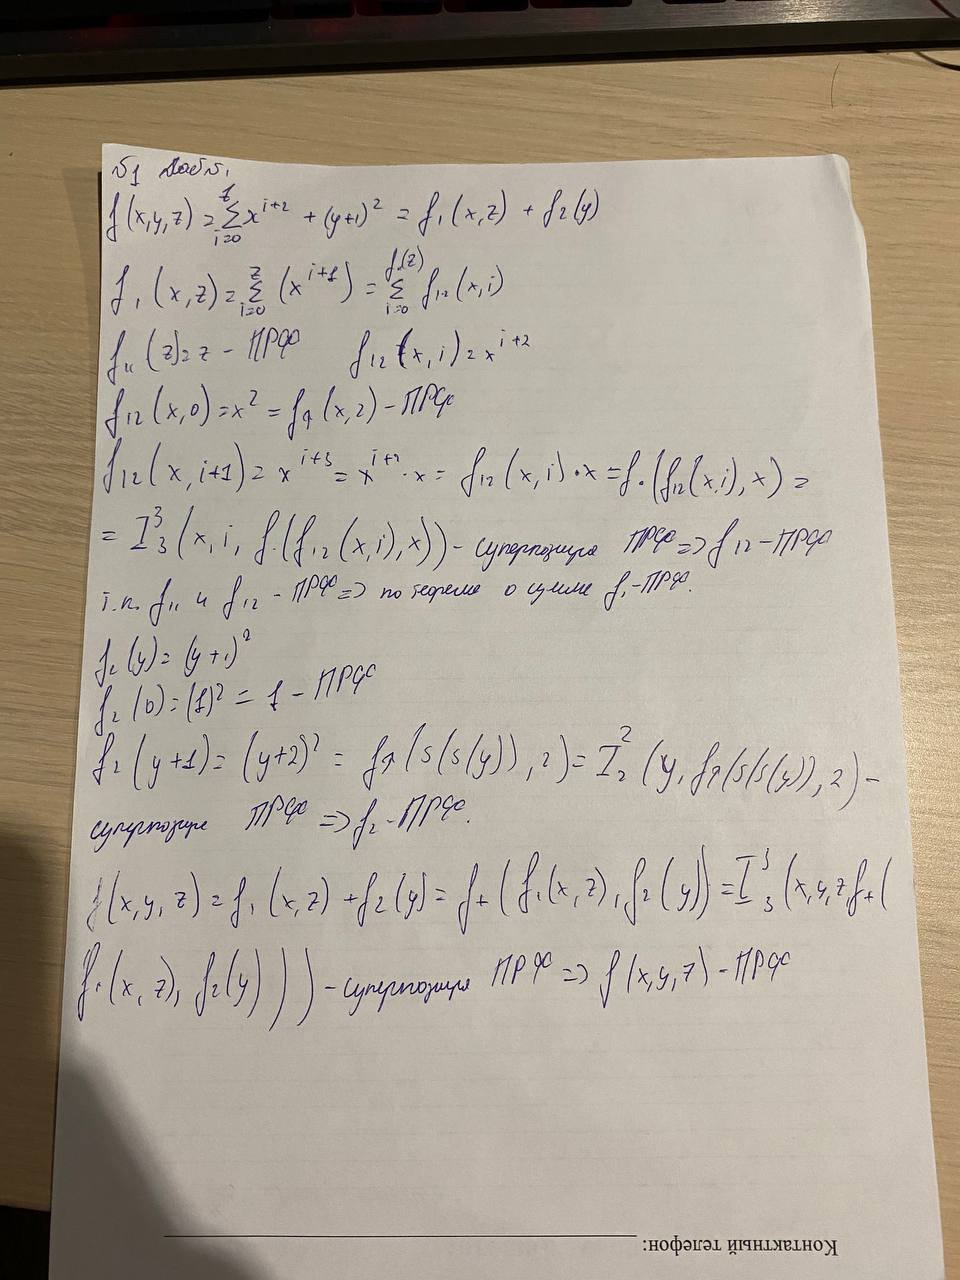 №1
f(x,y,z) = Σ_{i=0}^{z} x^{i+2} + (y+1)^2 = f₁(x,z) + f₂(y)
f₁(x,z) = Σ_{i=0}^{z} (x^{i+1}) = Σ_{i=0}^{f₁₁(z)} f₁₂(x,i)
f₁₁(z) = z - ПРФ f₁₂(x,i) = x^{i+2}
f₁₂(x,0) = x^2 = f↑(x,2) - ПРФ
f₁₂(x,i+1) = x^{i+3} = x^{i+2}·x = f₁₂(x,i)·x = f.(f₁₂(x,i),x) =
= I₃³(x,i, f.(f₁₂(x,i),x)) - суперпозиция ПРФ => f₁₂ - ПРФ
т.к. f₁₁ и f₁₂ - ПРФ => по теореме о сумме f₁ - ПРФ.
f₂(y) = (y+1)^2
f₂(0) = (1)^2 = 1 - ПРФ
f₂(y+1) = (y+2)^2 = f↑(s(s(y)),2) = I₂²(y, f↑(s(s(y)),2) -
суперпозиция ПРФ => f₂ - ПРФ.
f(x,y,z) = f₁(x,z) + f₂(y) = f₊(f₁(x,z), f₂(y)) = I₃³(x,y,z,f₊(
f₁(x,z), f₂(y))) - суперпозиция ПРФ => f(x,y,z) - ПРФ
Контактный телефон: